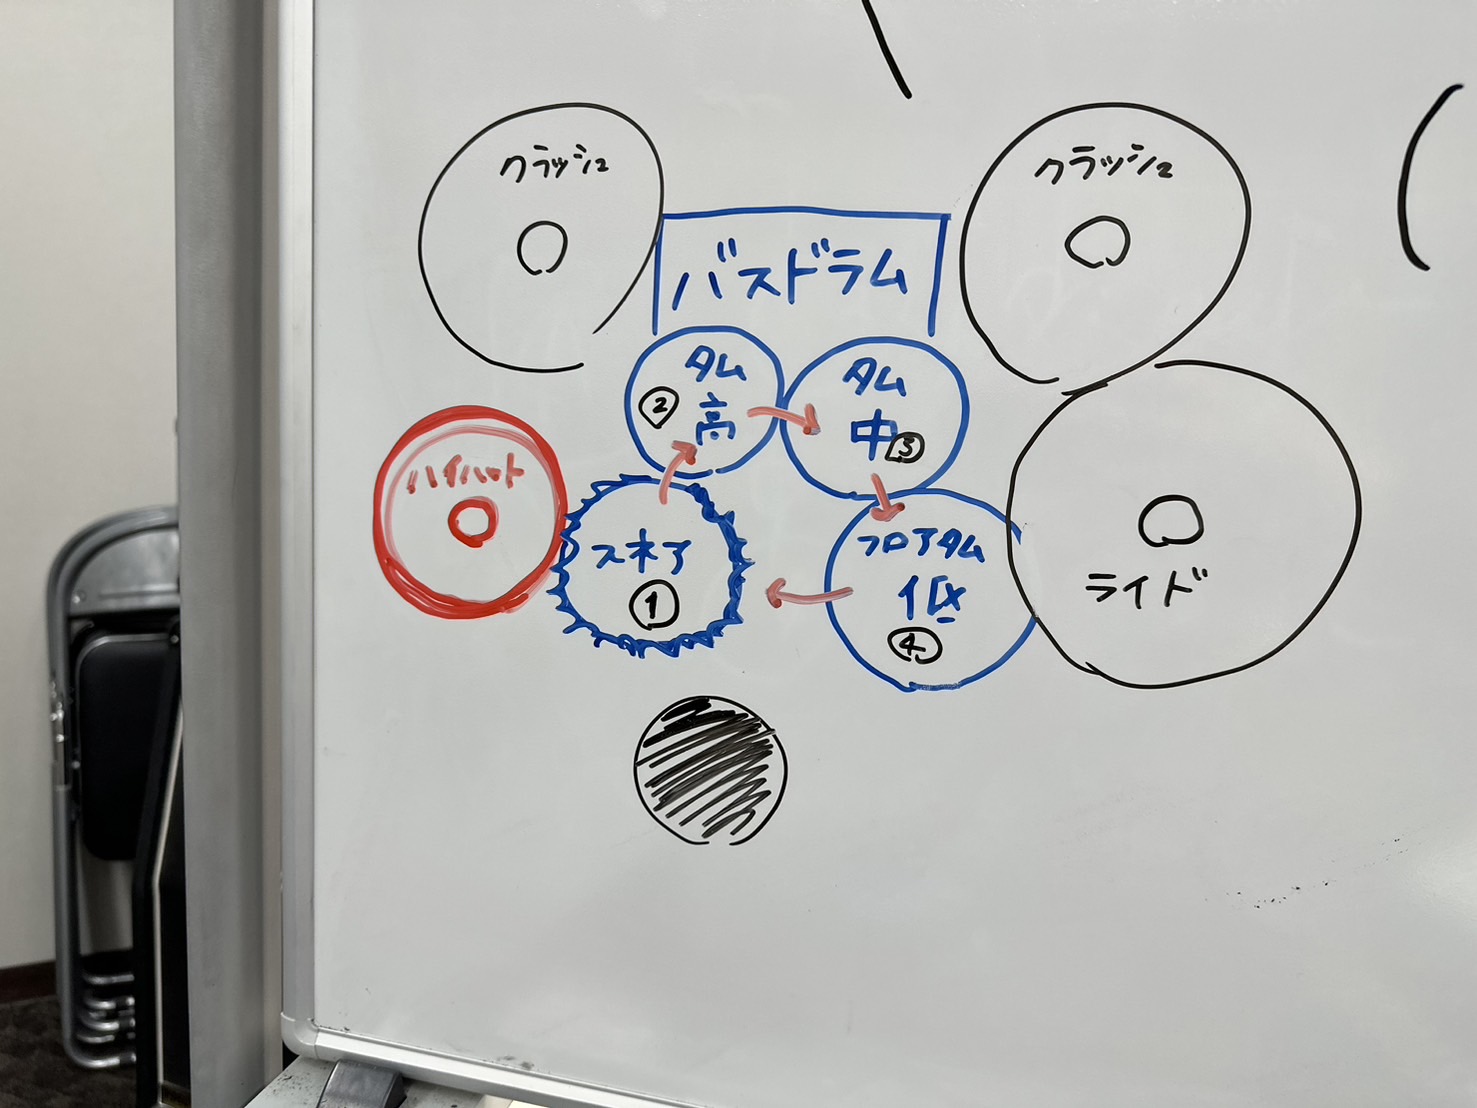 クラッシュ
クラッシュ
バスドラム
タム
② 高
タム
中 ③
ハイハット
スネア
①
フロアタム
低
④
ライド